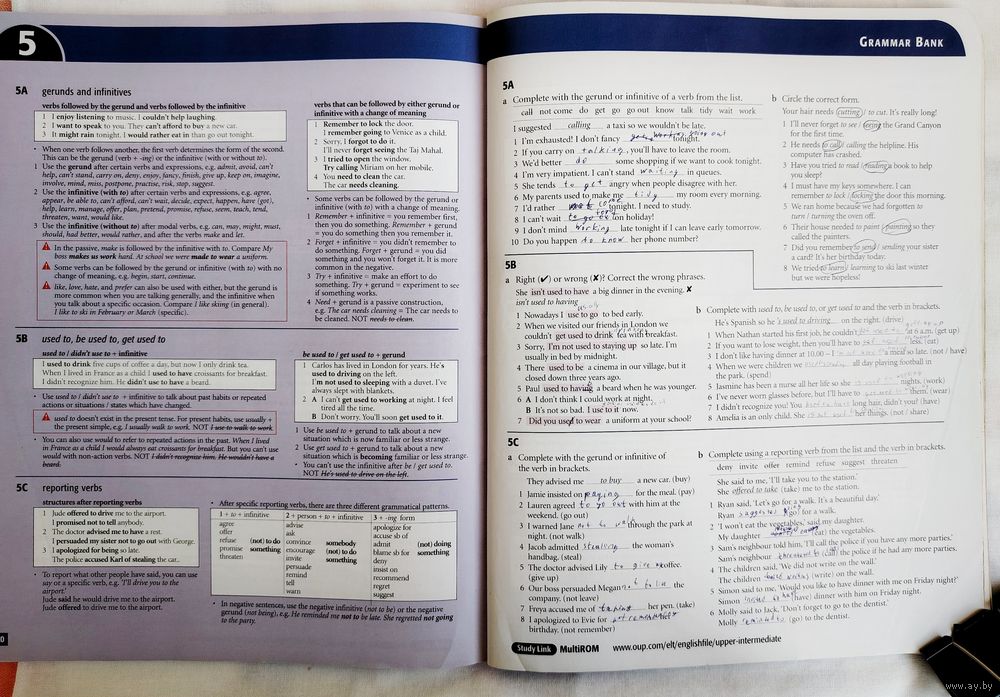 5
5A gerunds and infinitives
verbs followed by the gerund and verbs followed by the infinitive
1 I enjoy listening to music. I couldn't help laughing.
2 I want to speak to you. They can't afford to buy a new car.
3 It might rain tonight. I would rather eat in than go out tonight.
• When one verb follows another, the first verb determines the form of the second.
This can be the gerund (verb + -ing) or the infinitive (with or without to).
1 Use the gerund after certain verbs and expressions, e.g. admit, avoid, can't
help, can't stand, carry on, deny, enjoy, fancy, finish, give up, keep on, imagine,
involve, mind, miss, postpone, practise, risk, stop, suggest.
2 Use the infinitive (with to) after certain verbs and expressions, e.g. agree,
appear, be able to, can't afford, can't wait, decide, expect, happen, have (got),
help, learn, manage, offer, plan, pretend, promise, refuse, seem, teach, tend,
threaten, want, would like.
3 Use the infinitive (without to) after modal verbs, e.g. can, may, might, must,
should, had better, would rather, and after the verbs make and let.
In the passive, make is followed by the infinitive with to. Compare My
boss makes us work hard. At school we were made to wear a uniform.
Some verbs can be followed by the gerund or infinitive (with to) with no
change of meaning, e.g. begin, start, continue.
like, love, hate, and prefer can also be used with either, but the gerund is
more common when you are talking generally, and the infinitive when
you talk about a specific occasion. Compare I like skiing (in general).
I like to ski in February or March (specific).
verbs that can be followed by either gerund or
infinitive with a change of meaning
1 Remember to lock the door.
I remember going to Venice as a child.
2 Sorry, I forgot to do it.
I'll never forget seeing the Taj Mahal.
3 I tried to open the window.
Try calling Miriam on her mobile.
4 You need to clean the car.
The car needs cleaning.
• Some verbs can be followed by the gerund or
infinitive (with to) with a change of meaning.
1 Remember + infinitive = you remember first,
then you do something. Remember + gerund
= you do something then you remember it.
2 Forget + infinitive = you didn't remember to
do something. Forget + gerund = you did
something and you won't forget it. It is more
common in the negative.
3 Try + infinitive = make an effort to do
something. Try + gerund = experiment to see
if something works.
4 Need + gerund is a passive construction,
e.g. The car needs cleaning = The car needs to
be cleaned. NOT needs to clean.
5B used to, be used to, get used to
used to / didn't use to + infinitive
I used to drink five cups of coffee a day, but now I only drink tea.
When I lived in France as a child I used to have croissants for breakfast.
I didn't recognize him. He didn't use to have a beard.
• Use used to / didn't use to + infinitive to talk about past habits or repeated
actions or situations / states which have changed.
used to doesn't exist in the present tense. For present habits, use usually +
the present simple, e.g. I usually walk to work. NOT I use to walk to work.
• You can also use would to refer to repeated actions in the past. When I lived
in France as a child I would always eat croissants for breakfast. But you can't use
would with non-action verbs. NOT I didn't recognize him. He wouldn't have a
beard.
be used to / get used to + gerund
1 Carlos has lived in London for years. He's
used to driving on the left.
I'm not used to sleeping with a duvet. I've
always slept with blankets.
2 A I can't get used to working at night. I feel
tired all the time.
B Don't worry. You'll soon get used to it.
1 Use be used to + gerund to talk about a new
situation which is now familiar or less strange.
2 Use get used to + gerund to talk about a new
situation which is becoming familiar or less strange.
• You can't use the infinitive after be / get used to.
NOT He's used to drive on the left.
5C reporting verbs
structures after reporting verbs
1 Jude offered to drive me to the airport.
I promised not to tell anybody.
2 The doctor advised me to have a rest.
I persuaded my sister not to go out with George.
3 I apologized for being so late.
The police accused Karl of stealing the car.
• To report what other people have said, you can use
say or a specific verb, e.g. 'I'll drive you to the
airport.'
Jude said he would drive me to the airport.
Jude offered to drive me to the airport.
• After specific reporting verbs, there are three different grammatical patterns.
1 + to + infinitive 2 + person + to + infinitive 3 + -ing form
agree
offer
refuse (not) to do
promise something
threaten
advise
ask
convince somebody
encourage (not) to do
invite something
persuade
remind
tell
warn
apologize for
accuse sb of
admit (not) doing
blame sb for something
deny
insist on
recommend
regret
suggest
• In negative sentences, use the negative infinitive (not to be) or the negative
gerund (not being), e.g. He reminded me not to be late. She regretted not going
to the party.
0
GRAMMAR BANK
5A
a Complete with the gerund or infinitive of a verb from the list.
call not come do get go go out know talk tidy wait work
I suggested calling a taxi so we wouldn't be late.
1 I'm exhausted! I don't fancy going out tonight.
2 If you carry on talking, you'll have to leave the room.
3 We'd better do some shopping if we want to cook tonight.
4 I'm very impatient. I can't stand waiting in queues.
5 She tends to get angry when people disagree with her.
6 My parents used to make me tidy my room every morning.
7 I'd rather not tonight. I need to study.
8 I can't wait to go on holiday!
9 I don't mind working late tonight if I can leave early tomorrow.
10 Do you happen to know her phone number?
b Circle the correct form.
Your hair needs cutting / to cut. It's really long!
1 I'll never forget to see / seeing the Grand Canyon
for the first time.
2 He needs to call / calling the helpline. His
computer has crashed.
3 Have you tried to read / reading a book to help
you sleep!
4 I must have my keys somewhere. I can
remember to lock / locking the door this morning.
5 We ran home because we had forgotten to
turn / turning the oven off.
6 Their house needed to paint / painting so they
called the painters.
7 Did you remember to send / sending your sister
a card? It's her birthday today.
8 We tried to learn / learning to ski last winter
but we were hopeless!
5B
a Right (✔) or wrong (✘)? Correct the wrong phrases.
She isn't used to have a big dinner in the evening. ✘
isn't used to having
1 Nowadays I use to go to bed early.
2 When we visited our friends in London we
couldn't get used to drink tea with breakfast.
3 Sorry, I'm not used to staying up so late. I'm
usually in bed by midnight.
4 There used to be a cinema in our village, but it
closed down three years ago.
5 Paul used to have a beard when he was younger.
6 A I don't think I could work at night.
B It's not so bad. I use to it now.
7 Did you used to wear a uniform at your school?
b Complete with used to, be used to, or get used to and the verb in brackets.
He's Spanish so he 's used to driving on the right. (drive)
1 When Nathan started his first job, he couldn't at 6 a.m. (get up)
2 If you want to lose weight, then you'll have to less. (eat)
3 I don't like having dinner at 10.00 – I a meal so late. (not / have)
4 When we were children we all day playing football in
the park. (spend)
5 Jasmine has been a nurse all her life so she nights. (work)
6 I've never worn glasses before, but I'll have to them. (wear)
7 I didn't recognize you! You long hair, didn't you? (have)
8 Amelia is an only child. She her things. (not / share)
5C
a Complete with the gerund or infinitive of
the verb in brackets.
They advised me to buy a new car. (buy)
1 Jamie insisted on paying for the meal. (pay)
2 Lauren agreed to go out with him at the
weekend. (go out)
3 I warned Jane not to through the park at
night. (not walk)
4 Jacob admitted stealing the woman's
handbag. (steal)
5 The doctor advised Lily to give up coffee.
(give up)
6 Our boss persuaded Megan the
company. (not leave)
7 Freya accused me of taking her pen. (take)
8 I apologized to Evie for her
birthday. (not remember)
b Complete using a reporting verb from the list and the verb in brackets.
deny invite offer remind refuse suggest threaten
She said to me, 'I'll take you to the station.'
She offered to take (take) me to the station.
1 Ryan said, 'Let's go for a walk. It's a beautiful day.'
Ryan (go) for a walk.
2 'I won't eat the vegetables,' said my daughter.
My daughter (eat) the vegetables.
3 Sam's neighbour told him, 'I'll call the police if you have any more parties.'
Sam's neighbour (call) the police if he had any more parties.
4 The children said, 'We did not write on the wall.'
The children (write) on the wall.
5 Simon said to me, 'Would you like to have dinner with me on Friday night?'
Simon (have) dinner with him on Friday night.
6 Molly said to Jack, 'Don't forget to go to the dentist.'
Molly (go) to the dentist.
Study Link MultiROM www.oup.com/elt/englishfile/upper-intermediate
www.ay.by